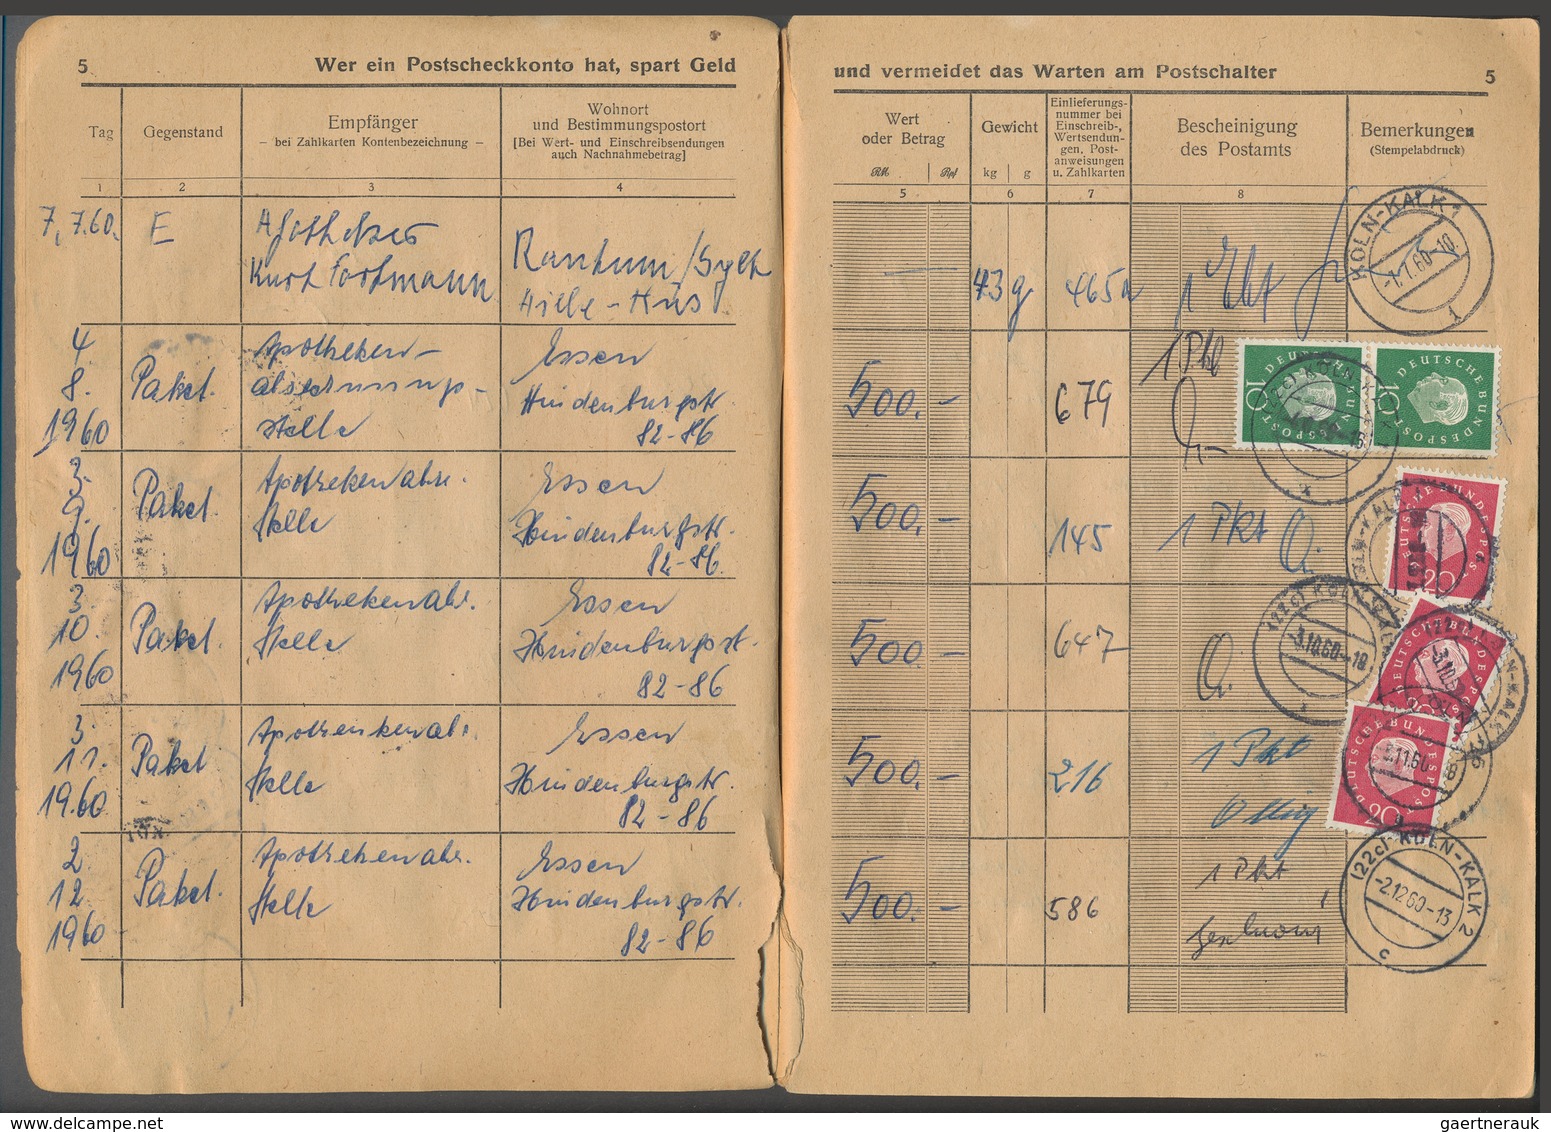 5 Wer ein Postscheckkonto hat, spart Geld
und vermeidet das Warten am Postschalter 5
Tag
Gegenstand
Empfänger
– bei Zahlkarten Kontenbezeichnung –
Wohnort
und Bestimmungspostort
[Bei Wert- und Einschreibsendungen
auch Nachnahmebetrag]
Wert
oder Betrag
RM Rpf
Gewicht
kg g
Einlieferungs-
nummer bei
Einschreib-,
Wertsendun-
gen, Post-
anweisungen
u. Zahlkarten
Bescheinigung
des Postamts
Bemerkungen
(Stempelabdruck)
1 2 3 4 5 6 7 8
7.7.60. E
Apotheker
Kurt Fortmann
Rantum/Sylt
43g 465
KÖLN-KALK 1
-7.7.60-10
f
4
8.
1960
Paket.
Apotheken-
abrechnungs-
stelle
Essen
Hindenburgstr.
82-86
500.- 679
10 DEUTSCHE BUNDESPOST
10 DEUTSCHE BUNDESPOST
3.
9.
1960
Paket.
Apothekenabre.
stelle
Essen
Hindenburgstr.
82-86.
500.- 145 1 Pkt
DEUTSCHE BUNDESPOST 20
3.
10.
1960
Paket.
Apothekenabr.
stelle
Essen
Hindenburgstr.
82-86
500- 647
-3.10.60-18
DEUTSCHE BUNDESPOST
3.
11.
1960
Paket
Apothenkenab.
stelle
Essen
Hindenburgstr.
82-86
500.- 216 1 Pkt
DEUTSCHE BUNDESPOST 20
2.
12
1960
Paket.
Apothekenabr.
stelle
Essen
Hindenburgstr.
82-86
500.- 586 1 Pkt
(22c) KÖLN-KALK 2
-2.12.60-13
c
gaertnerauk